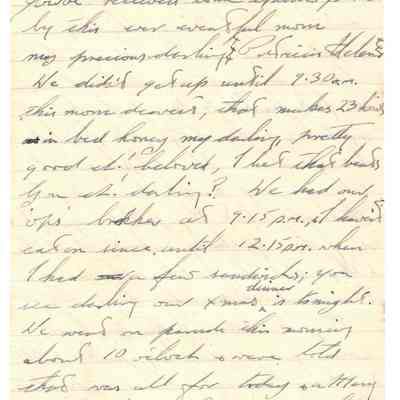 by this ever eventful morn
my precious darling Patricia Helen &
We didn't get up until 9.30 a.m.
this morn dearest, that makes 23 hours
in bed honey my darling, pretty
good eh! beloved, I bet that beats
you eh. darling? We had our
'ops' at 9.15 p.m., & I haven't
eaten since until 12.15 p.m. when
I had a few sandwichs; you
see darling our xmas dinner is tonight.
We went on parade this morning
about 10 o'clock & were told
that was all for today so